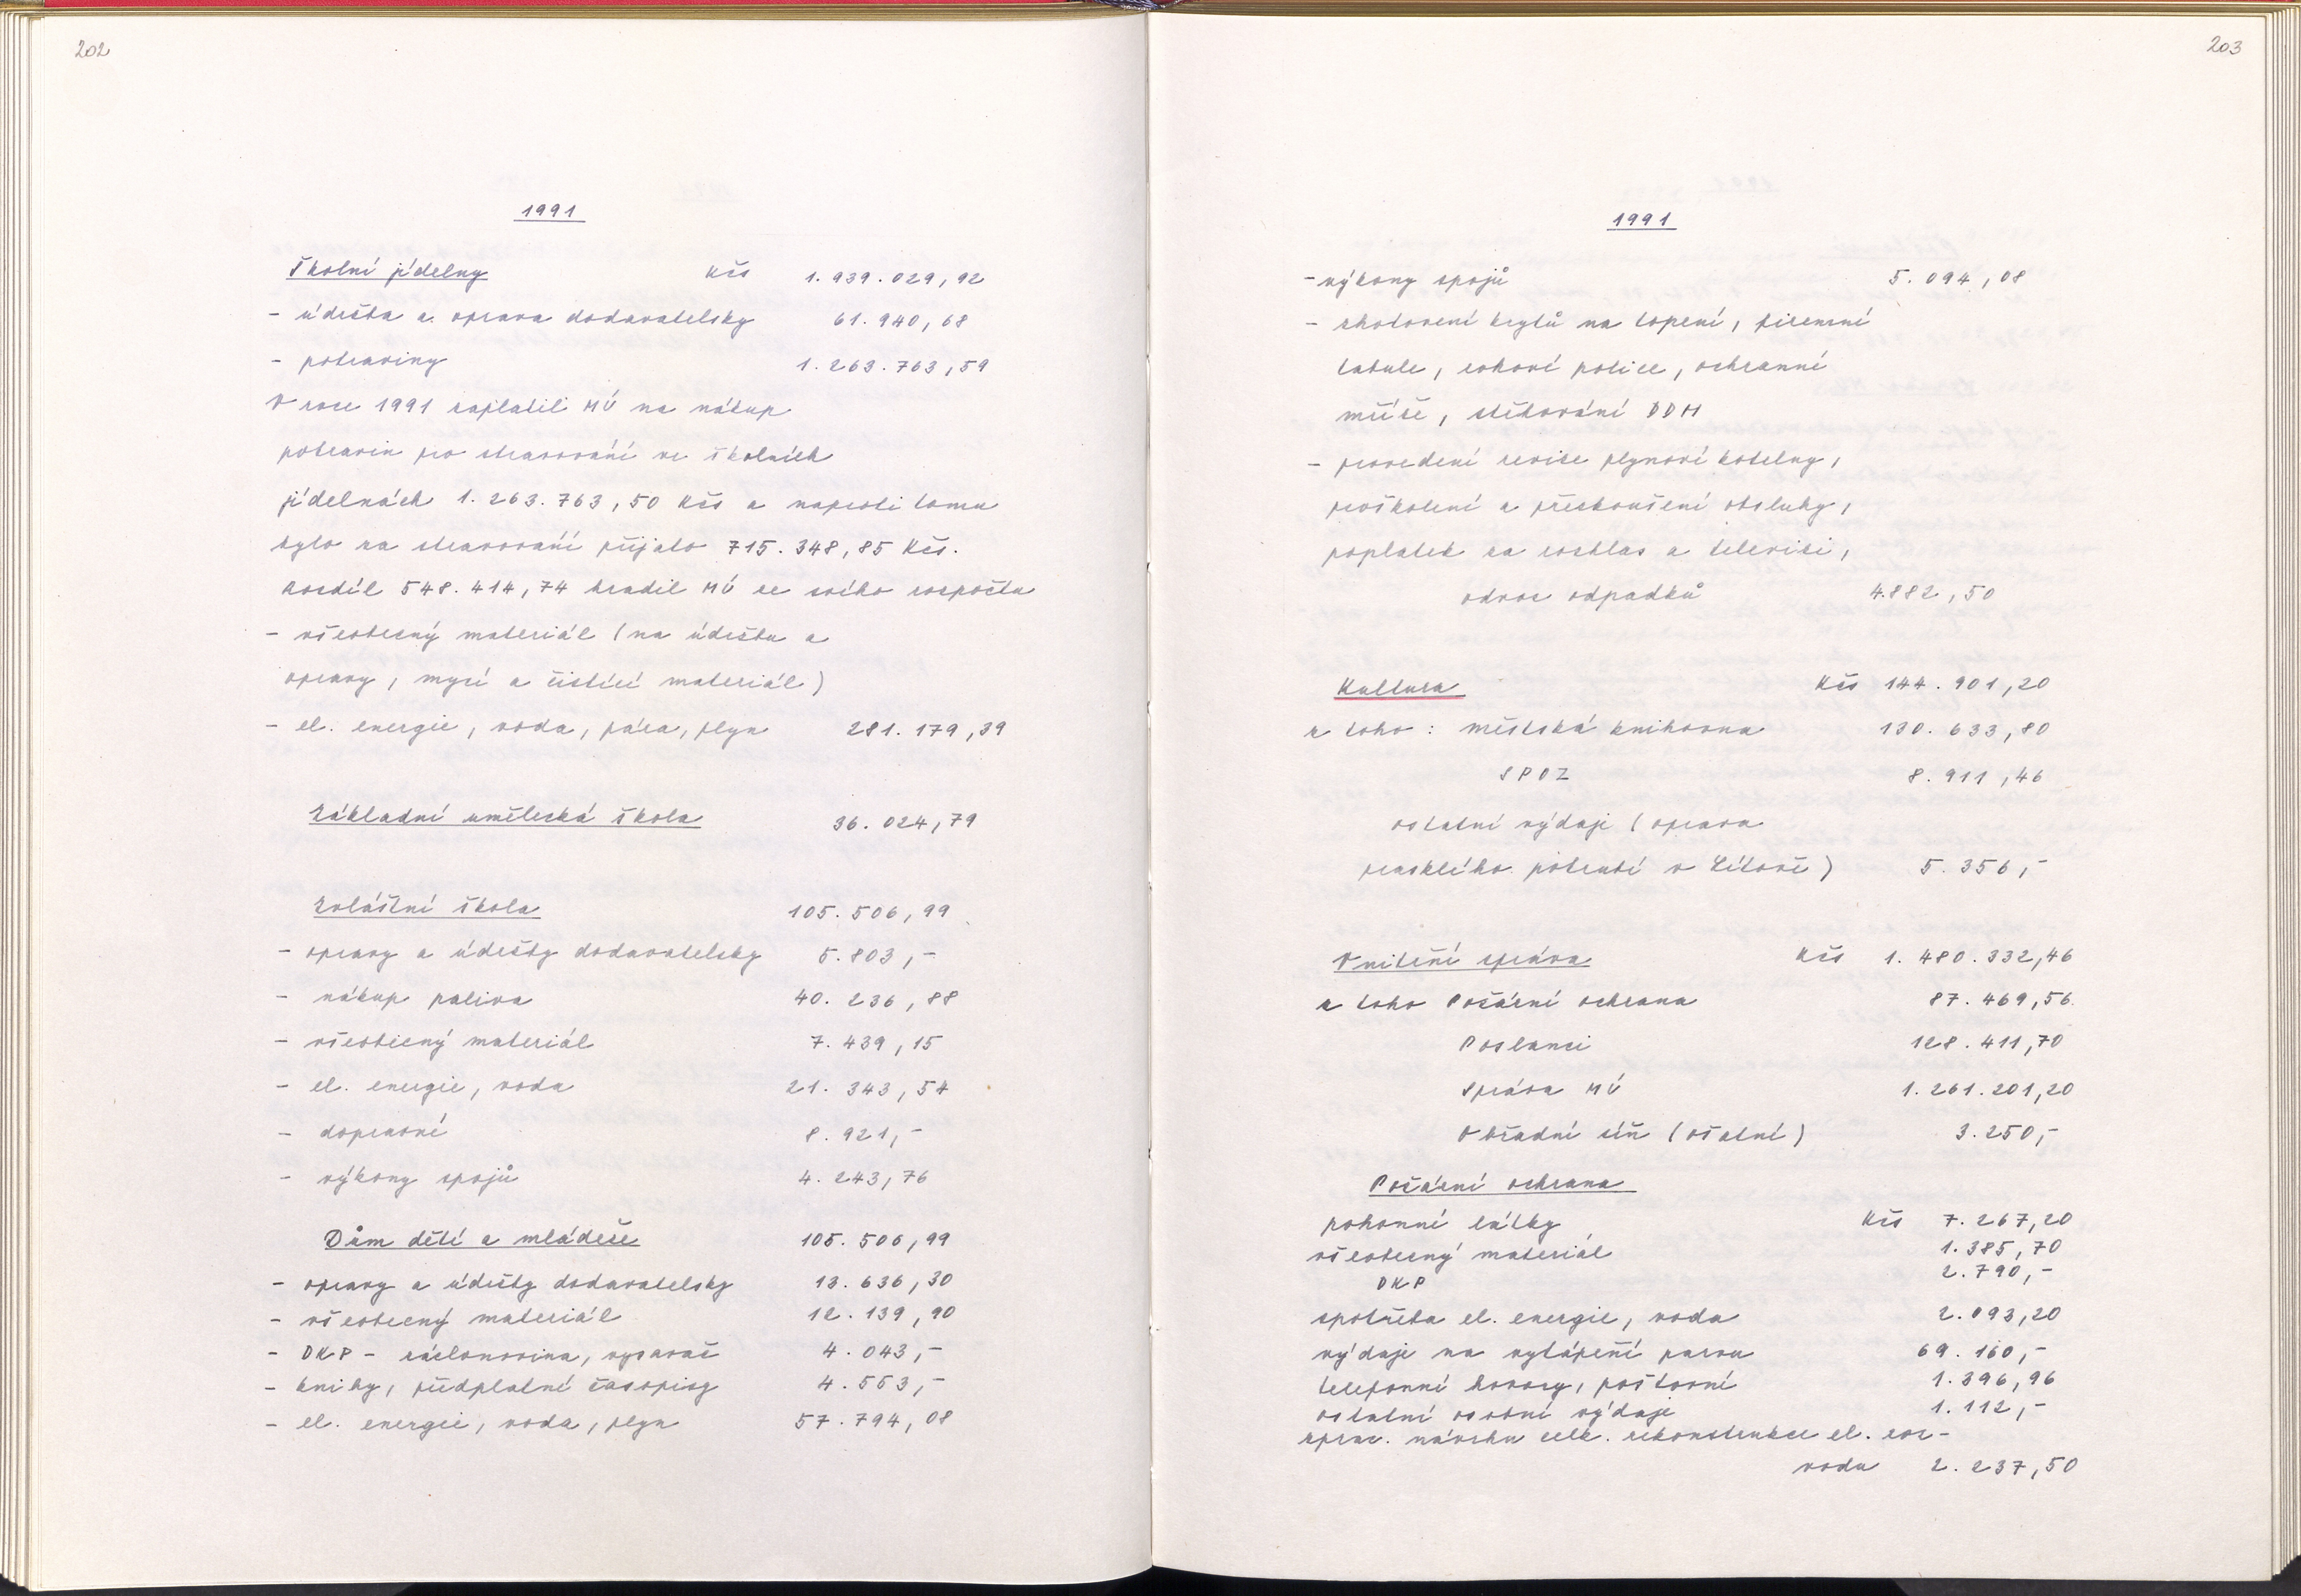 202
1991
Školní jídelny Kčs 1.939.029,92
- údržba a oprava dodavatelsky 61.940,68
- potraviny 1.263.763,59
V roce 1991 zaplatil MÚ na nákup
potravin pro stravování ve školních
jídelnách 1.263.763,50 Kčs a naproti tomu
bylo za stravování přijato 715.348,85 Kčs.
Rozdíl 548.414,74 hradil MÚ ze svého rozpočtu
- všeobecný materiál (na údržbu a
opravy, mycí a čistící materiál)
- el. energie, voda, pára, plyn 281.179,39
Základní umělecká škola 36.024,79
Zvláštní škola 105.506,99
- opravy a údržby dodavatelsky 5.803,-
- nákup paliva 40.236,88
- všeobecný materiál 7.439,15
- el. energie, voda 21.343,54
- dopravné 8.921,-
- výkony spojů 4.243,76
Dům dětí a mládeže 105.506,99
- opravy a údržby dodavatelsky 13.636,30
- všeobecný materiál 12.139,90
- DKP - záclonovina, vysavač 4.043,-
- knihy, předplatné časopisy 4.553,-
- el. energie, voda, plyn 57.794,08
203
1991
- výkony spojů 5.094,08
- zhotovení krytů na topení, firemní
tabule, rohové police, ochranné
mříže, stěhování DDM
- provedení revize plynové kotelny,
proškolení a přezkoušení obsluhy,
poplatek za rozhlas a televizi,
odvoz odpadků 4.882,50
Kultura Kčs 144.901,20
z toho: městská knihovna 130.633,80
SPOZ 8.911,46
ostatní výdaje (oprava
prasklého potrubí v Lítově) 5.356,-
Vnitřní správa Kčs 1.480.332,46
z toho Požární ochrana 87.469,56
Poslanci 128.411,70
Správa MÚ 1.261.201,20
Obřadní síň (ošatné) 3.250,-
Požární ochrana
pohonné látky Kčs 7.267,20
všeobecný materiál 1.385,70
DKP 2.790,-
spotřeba el. energie, voda 2.093,20
výdaje na vytápění parou 69.160,-
telefonní hovory, poštovné 1.396,96
ostatní osobní výdaje 1.112,-
zprac. návrhu celk. rekonstrukce el. roz-
vodu 2.237,50